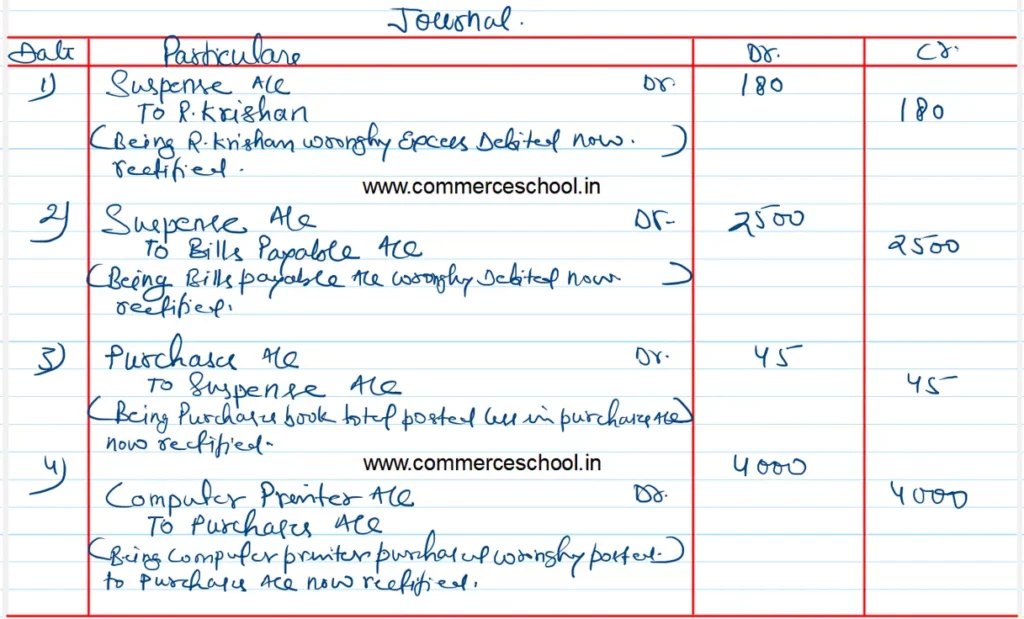 Journal.
Date Particulars Dr. Cr.
1) Suspense A/c Dr. 180
To R.Krishan 180
(Being R.Krishan wrongly Excess Debited now.)
rectified.
www.commerceschool.in
2) Suspense A/c Dr- 2500
To Bills Payable A/c 2500
(Being Bills payable A/c wrongly Debited now.)
rectified.
3) Purchases A/c Dr. 45
To Suspense A/c 45
(Being Purchases book total posted less in purchases A/c)
now rectified.
www.commerceschool.in
4) 4000
Computer Printer A/c Dr. 4000
To Purchases A/c
(Being Computer printer purchased wrongly posted.)
to Purchases A/c now rectified.